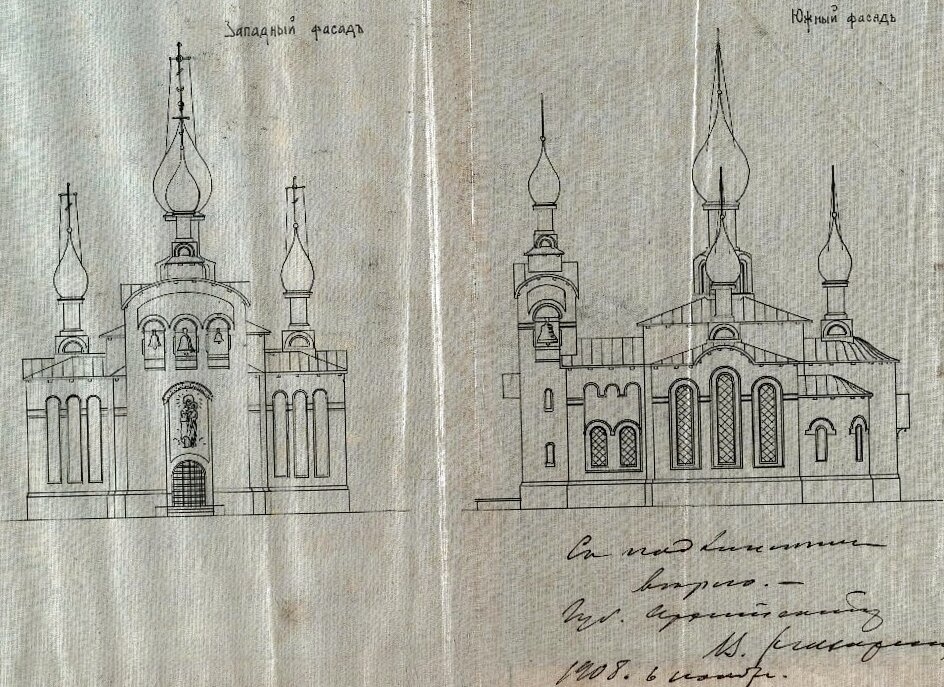 Западный фасадъ
Южный фасадъ
Съ подлиннымъ
вѣрно.—
Губ. Архитекторъ
В.
1908. 6 ноябр.